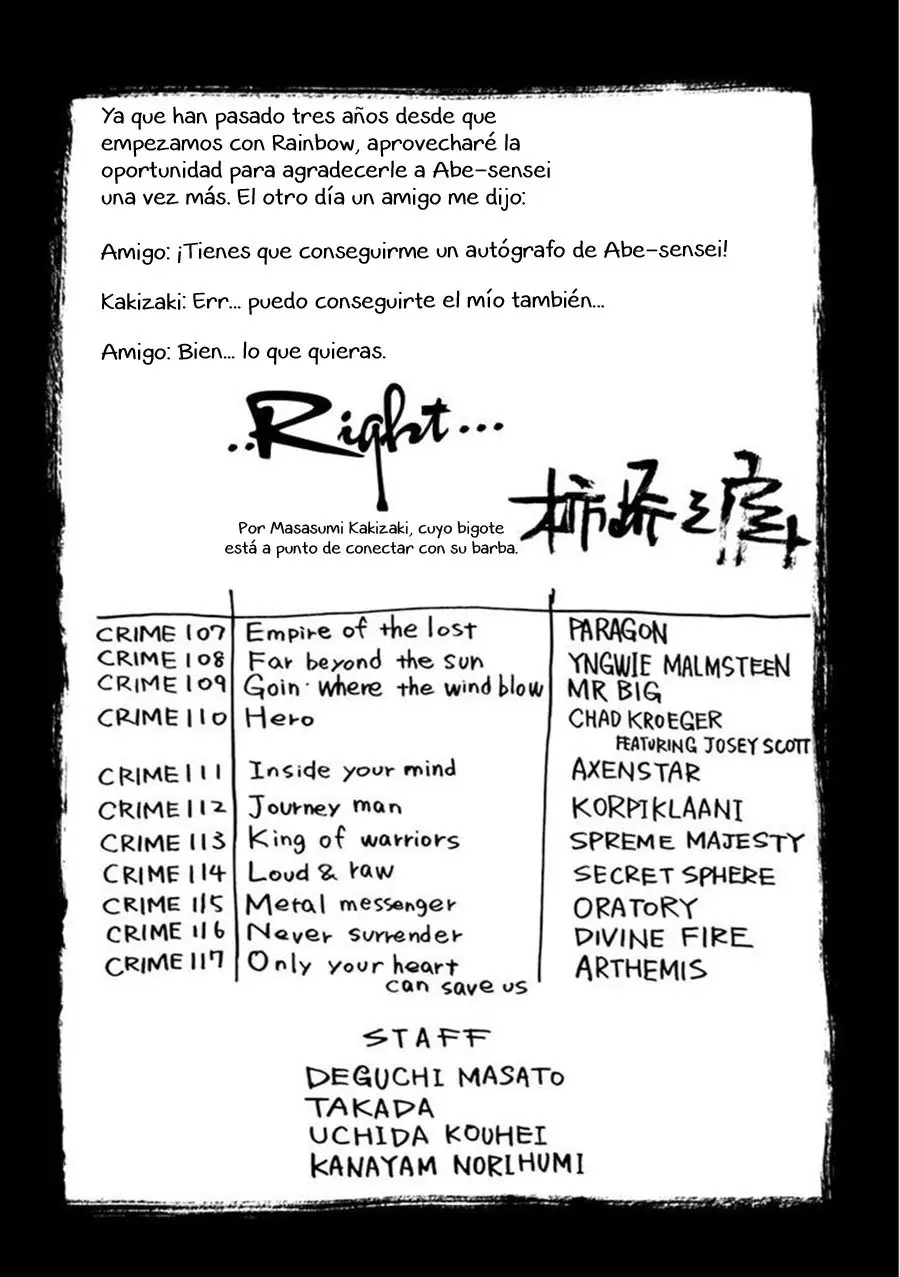 Ya que han pasado tres años desde que
empezamos con Rainbow, aprovecharé la
oportunidad para agradecerle a Abe-sensei
una vez más. El otro día un amigo me dijo:
Amigo: ¡Tienes que conseguirme un autógrafo de Abe-sensei!
Kakizaki: Err... puedo conseguirte el mío también...
Amigo: Bien... lo que quieras.
..Right...
Por Masasumi Kakizaki, cuyo bigote
está a punto de conectar con su barba.
CRIME 107 Empire of the lost PARAGON
CRIME 108 Far beyond the sun YNGWIE MALMSTEEN
CRIME 109 Goin' where the wind blow MR BIG
CRIME 110 Hero CHAD KROEGER
FEATURING JOSEY SCOTT
CRIME 111 Inside your mind AXENSTAR
CRIME 112 Journey man KORPIKLAANI
CRIME 113 King of warriors SPREME MAJESTY
CRIME 114 Loud & raw SECRET SPHERE
CRIME 115 Metal messenger ORATORY
CRIME 116 Never surrender DIVINE FIRE
CRIME 117 Only your heart ARTHEMIS
can save us
STAFF
DEGUCHI MASATO
TAKADA
UCHIDA KOUHEI
KANAYAM NORIHUMI